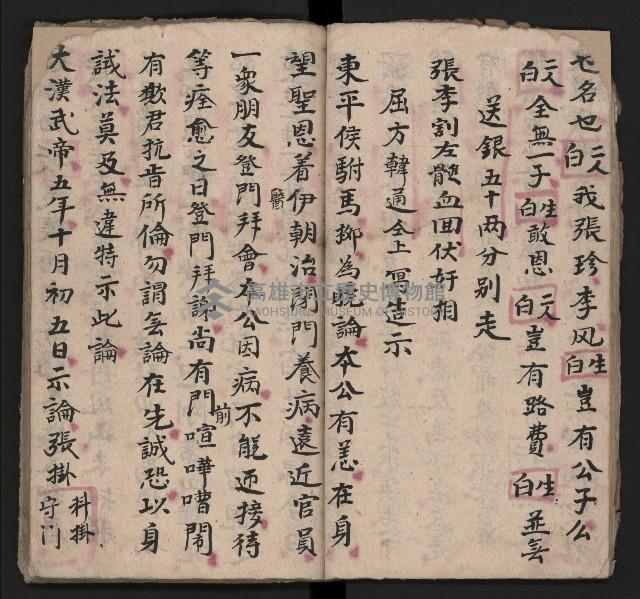 乜名乜 二人白 我張珍李风 生白 豈有公子么
二人白 全無一子 生白 敢恩 二人白 豈有路費 生白 並無
送銀五十两分别走
張李割左髋血回伏奸相
屈方韓通仝上冥造示
東平侯駙馬挪為此論本公有恙在身
望聖恩着伊朝治閉門養病遠近官員
醫
一衆朋友登門拜會本公因病不能迊接待
等痊愈之日登門拜謝尚有門前喧嘩嘈鬧
有欺君抗旨所倫勿謂無論在先誠恐以身
試法莫及無違特示此論
大漢武帝五年十月初五日示論張掛 科掛 守门
高雄市立歷史博物館
KAOHSIUNG MUSEUM OF HISTORY